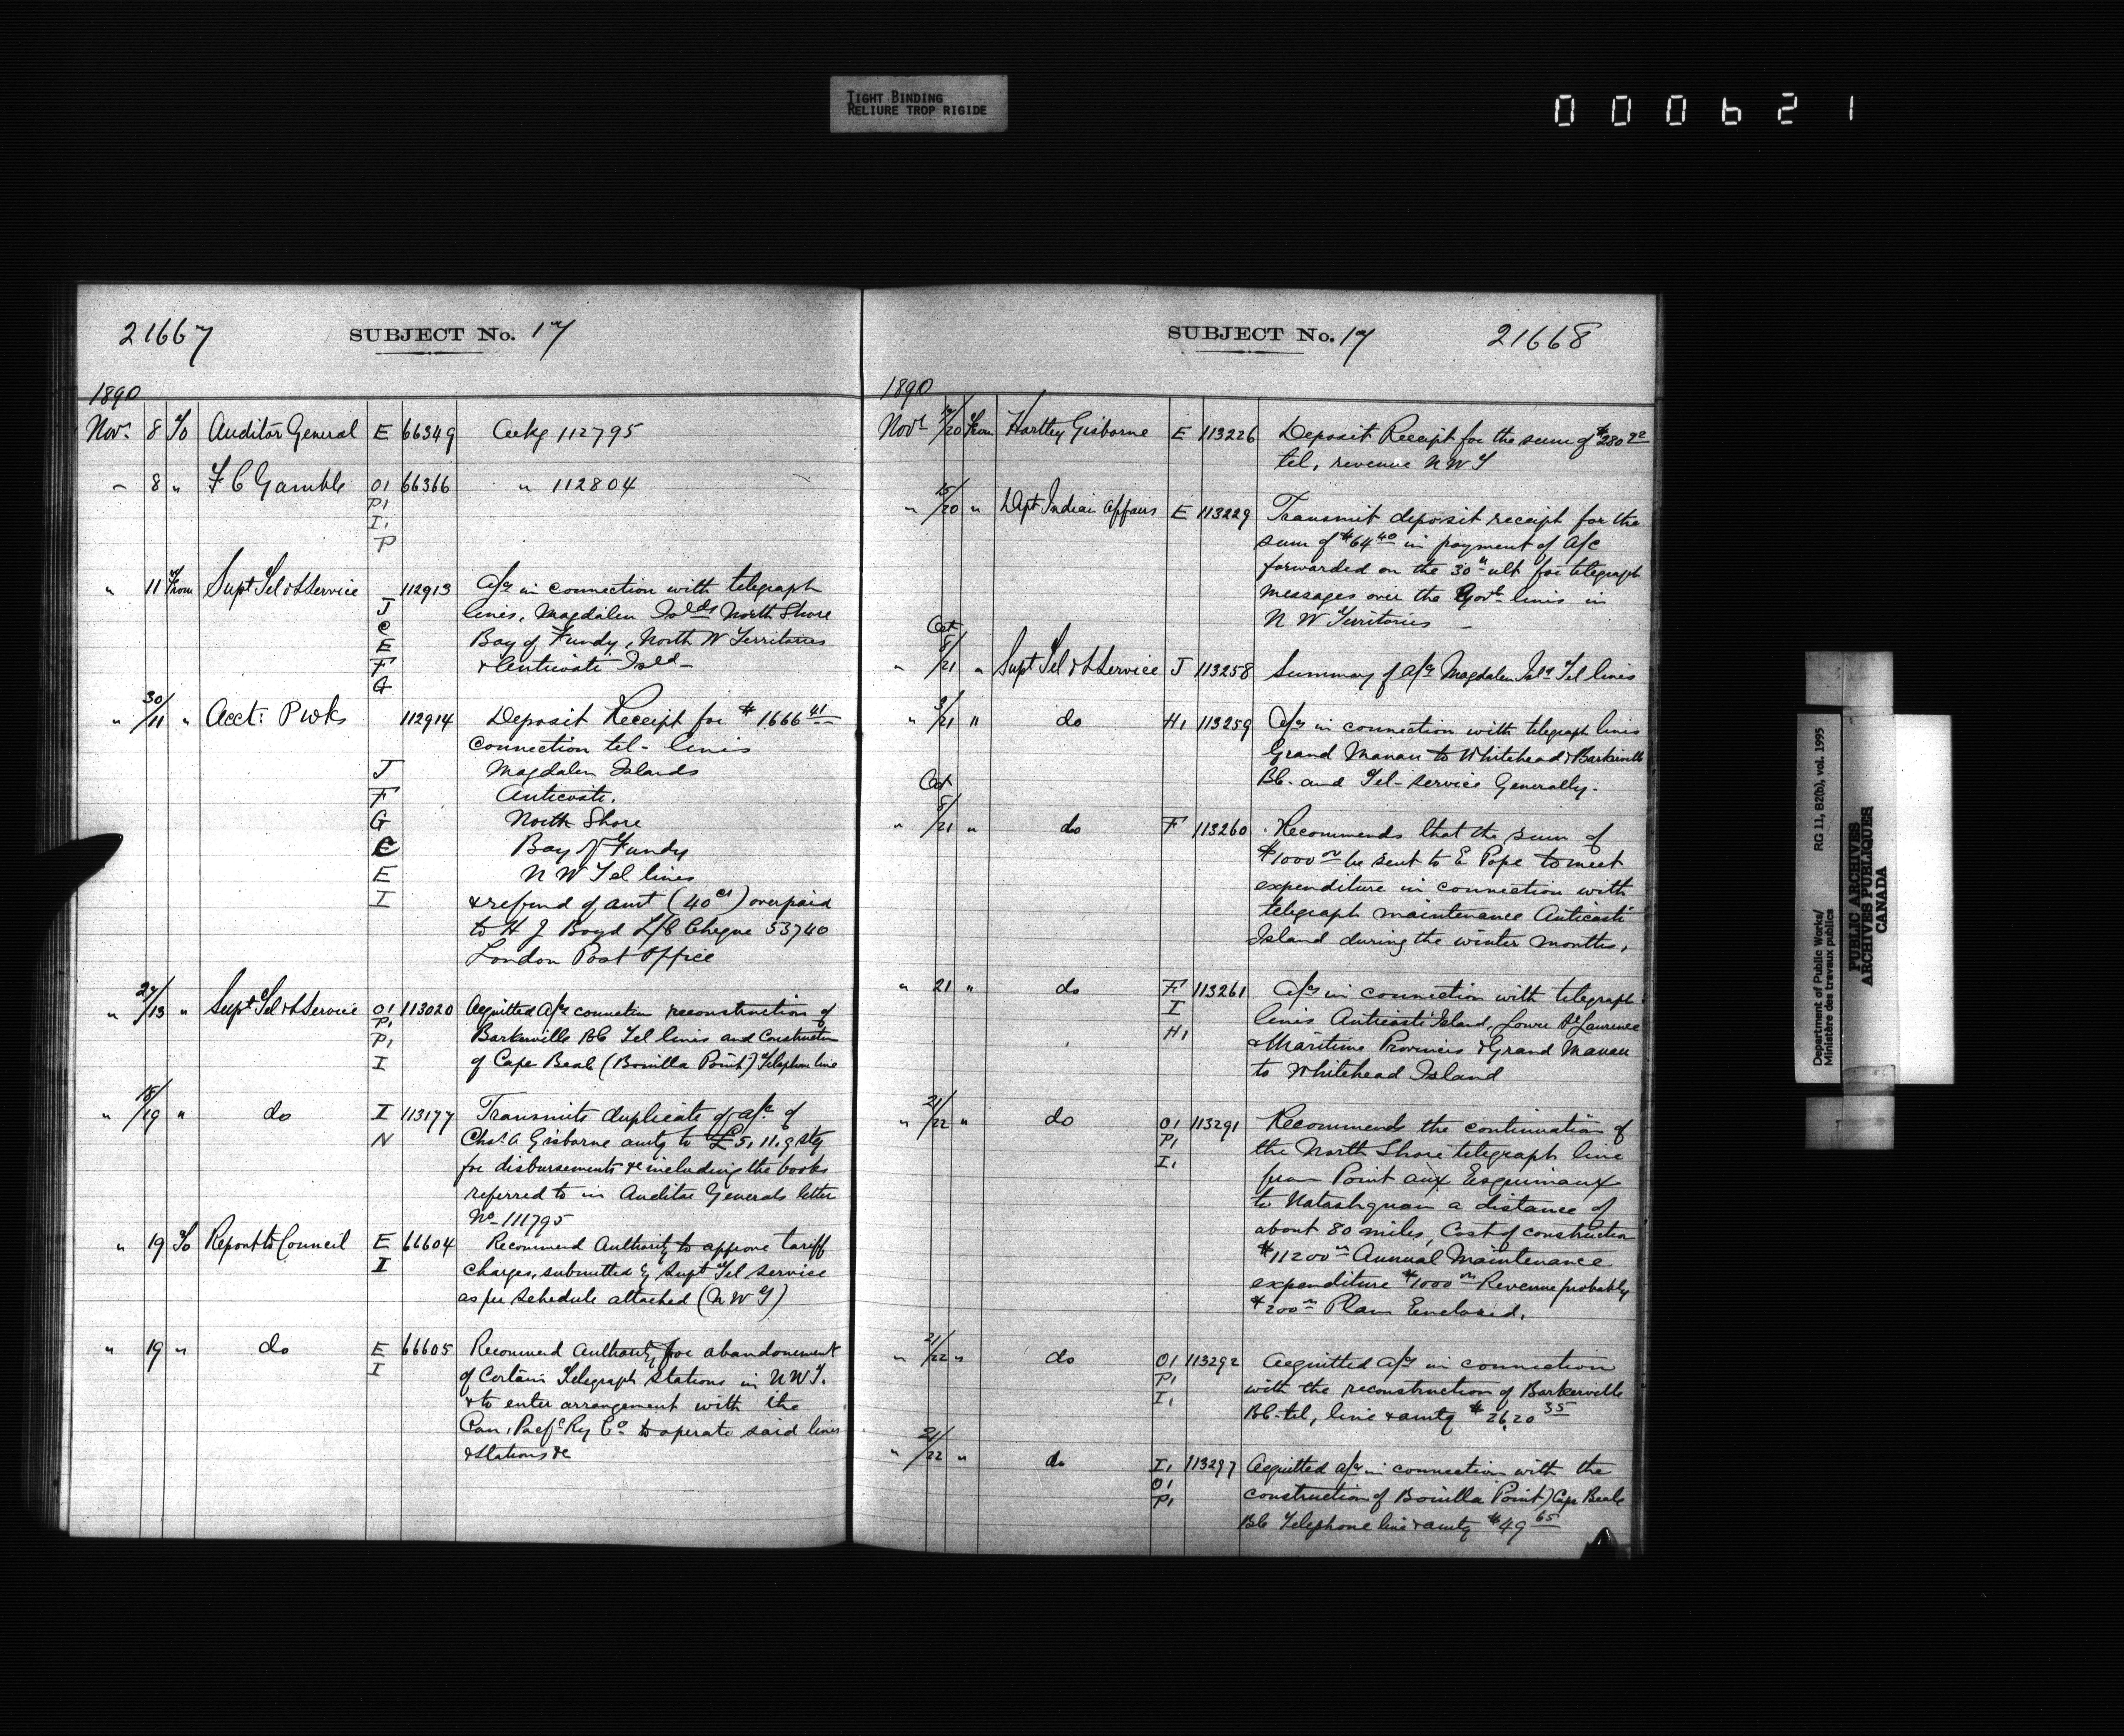 TIGHT BINDING
RELIURE TROP RIGIDE
000621
21667 SUBJECT No. 17
1890
Nov. 8 To Auditor General E 66349 Ackg 112795
" 8 " F C Gamble O1 66366 " 112804
P1
I1
P
" 11 From Supt Tel & S Service 112913 A/cs in connection with telegraph
J lines, Magdalen Islds North Shore
C
E Bay of Fundy, North W Territories
F & Anticosti Isld
G
" 30/11 " Acct: P wks 112914 Deposit Receipt for $1666 41
Connection tel- lines
J Magdalen Islands
F Anticosti.
G North Shore
C Bay of Fundy
E N W Tel lines
I & refund of amt (40 cts) overpaid
to H J Boyd L/C Cheque 53740
London Post Office
" 27/13 " Supt Tel & S Service O1 113020 Acquitted A/cs connection reconstruction of
P1
P1 Barkerville BC Tel lines and Construction
I of Cape Beal (Bonilla Point) Telephone line
" 18/19 " do I 113177 Transmits duplicate of a/c of
N Chas. A Gisborne amtg to £5,11,9 stg
for disbursements &c including the books
referred to in Auditor Generals letter
No- 111795
" 19 To Report to Council E 66604 Recommend Authority to approve tariff
I charges, submitted by Supt Tel service
as per schedule attached (N W T)
" 19 " do E 66605 Recommend Authority for abandonement
I of Certain Telegraph Stations in N W T.
& to enter arrangement with the
Can. Pacfc Ry Co to operate said lines
& stations &c
SUBJECT No. 17 21668
1890
Novr /20 From Hartley Gisborne E 113226 Deposit Receipt for the sum of $280
tel, revenue N W T
" 15/20 " Dept Indian Affairs E 113229 Transmit deposit receipt for the
sum of $64 40 in payment of A/C
forwarded on the 30th ult for telegraph
messages over the Govt lines in
N W Territories
Oct
" 8/21 " Supt Tel & S Service J 113258 Summary of A/cs Magdalen Isls Tel lines
" 3/21 " do H1 113259 A/cs in connection with telegraph lines
Grand Manan to Whitehead & Barkerville
BC- and Tel- service Generally.
Oct
" 8/21 " do F 113260 Recommends that the sum of
$1000 00 be sent to E Pope to meet
expenditure in connection with
telegraph maintenance Anticosti
Island during the winter months.
" 21 " do F 113261 A/cs in connection with telegraph
I lines Anticosti Island, Lower St Laurence
H1 & Maritime Provinces & Grand Manan
to Whitehead Island
" 21/22 " do O1 113291 Recommends the continuation of
P1 the North Shore telegraph line
I1
from Point aux Esquimaux
to Natashquan a distance of
about 80 miles, Cost of construction
$11200 00 Annual Maintenance
expenditure $1000 00 Revenue probably
$200 00 Plan Enclosed.
" 21/22 " do O1 113292 Acquitted A/cs in connection
P1
I1 with the reconstruction of Barkerville
BC- tel, line & amtg $2620 35
" 21/22 " do I1 113297 Acquitted a/cs in connection with the
O1
P1 construction of Bonilla Point) Cape Beale
BC Telephone line & amtg $49 65
Department of Public Works/ RG 11, B2(b), vol. 1995
Ministère des travaux publics
PUBLIC ARCHIVES
ARCHIVES PUBLIQUES
CANADA